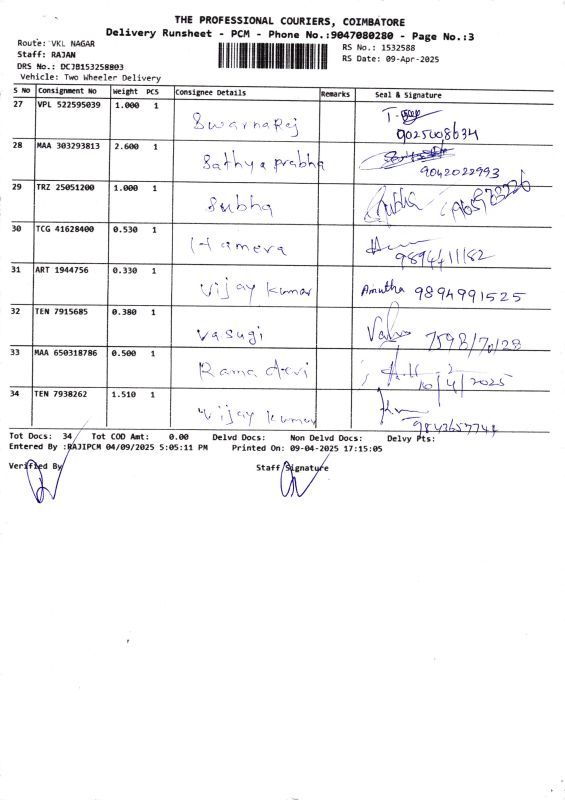 THE PROFESSIONAL COURIERS, COIMBATORE
Delivery Runsheet - PCM - Phone No.:9047080280 - Page No.:3
Route: VKL NAGAR
RS No.: 1532588
Staff: RAJAN
RS Date: 09-Apr-2025
DRS No.: DCJB153258803
Vehicle: Two Wheeler Delivery
S No Consignment No Weight PCS Consignee Details Remarks Seal & Signature
27 VPL 522595039 1.000 1 Swarnaraj
9025008634
28 MAA 303293813 2.600 1 Sathya prabha
9042022993
29 TRZ 25051200 1.000 1 Subha Subha
30 TCG 41628400 0.530 1 Hamera
9894411182
31 ART 1944756 0.330 1 Vijay kumar Amutha 9894991525
32 TEN 7915685 0.380 1 Vasugi 7598170128
33 MAA 650318786 0.500 1 Rama devi
10/4/2025
34 TEN 7938262 1.510 1 Vijay kumar
9843657748
Tot Docs: 34 Tot COD Amt: 0.00 Delvd Docs: Non Delvd Docs: Delvy Pts:
Entered By :RAJIPCM 04/09/2025 5:05:11 PM Printed On: 09-04-2025 17:15:05
Verified By Staff Signature